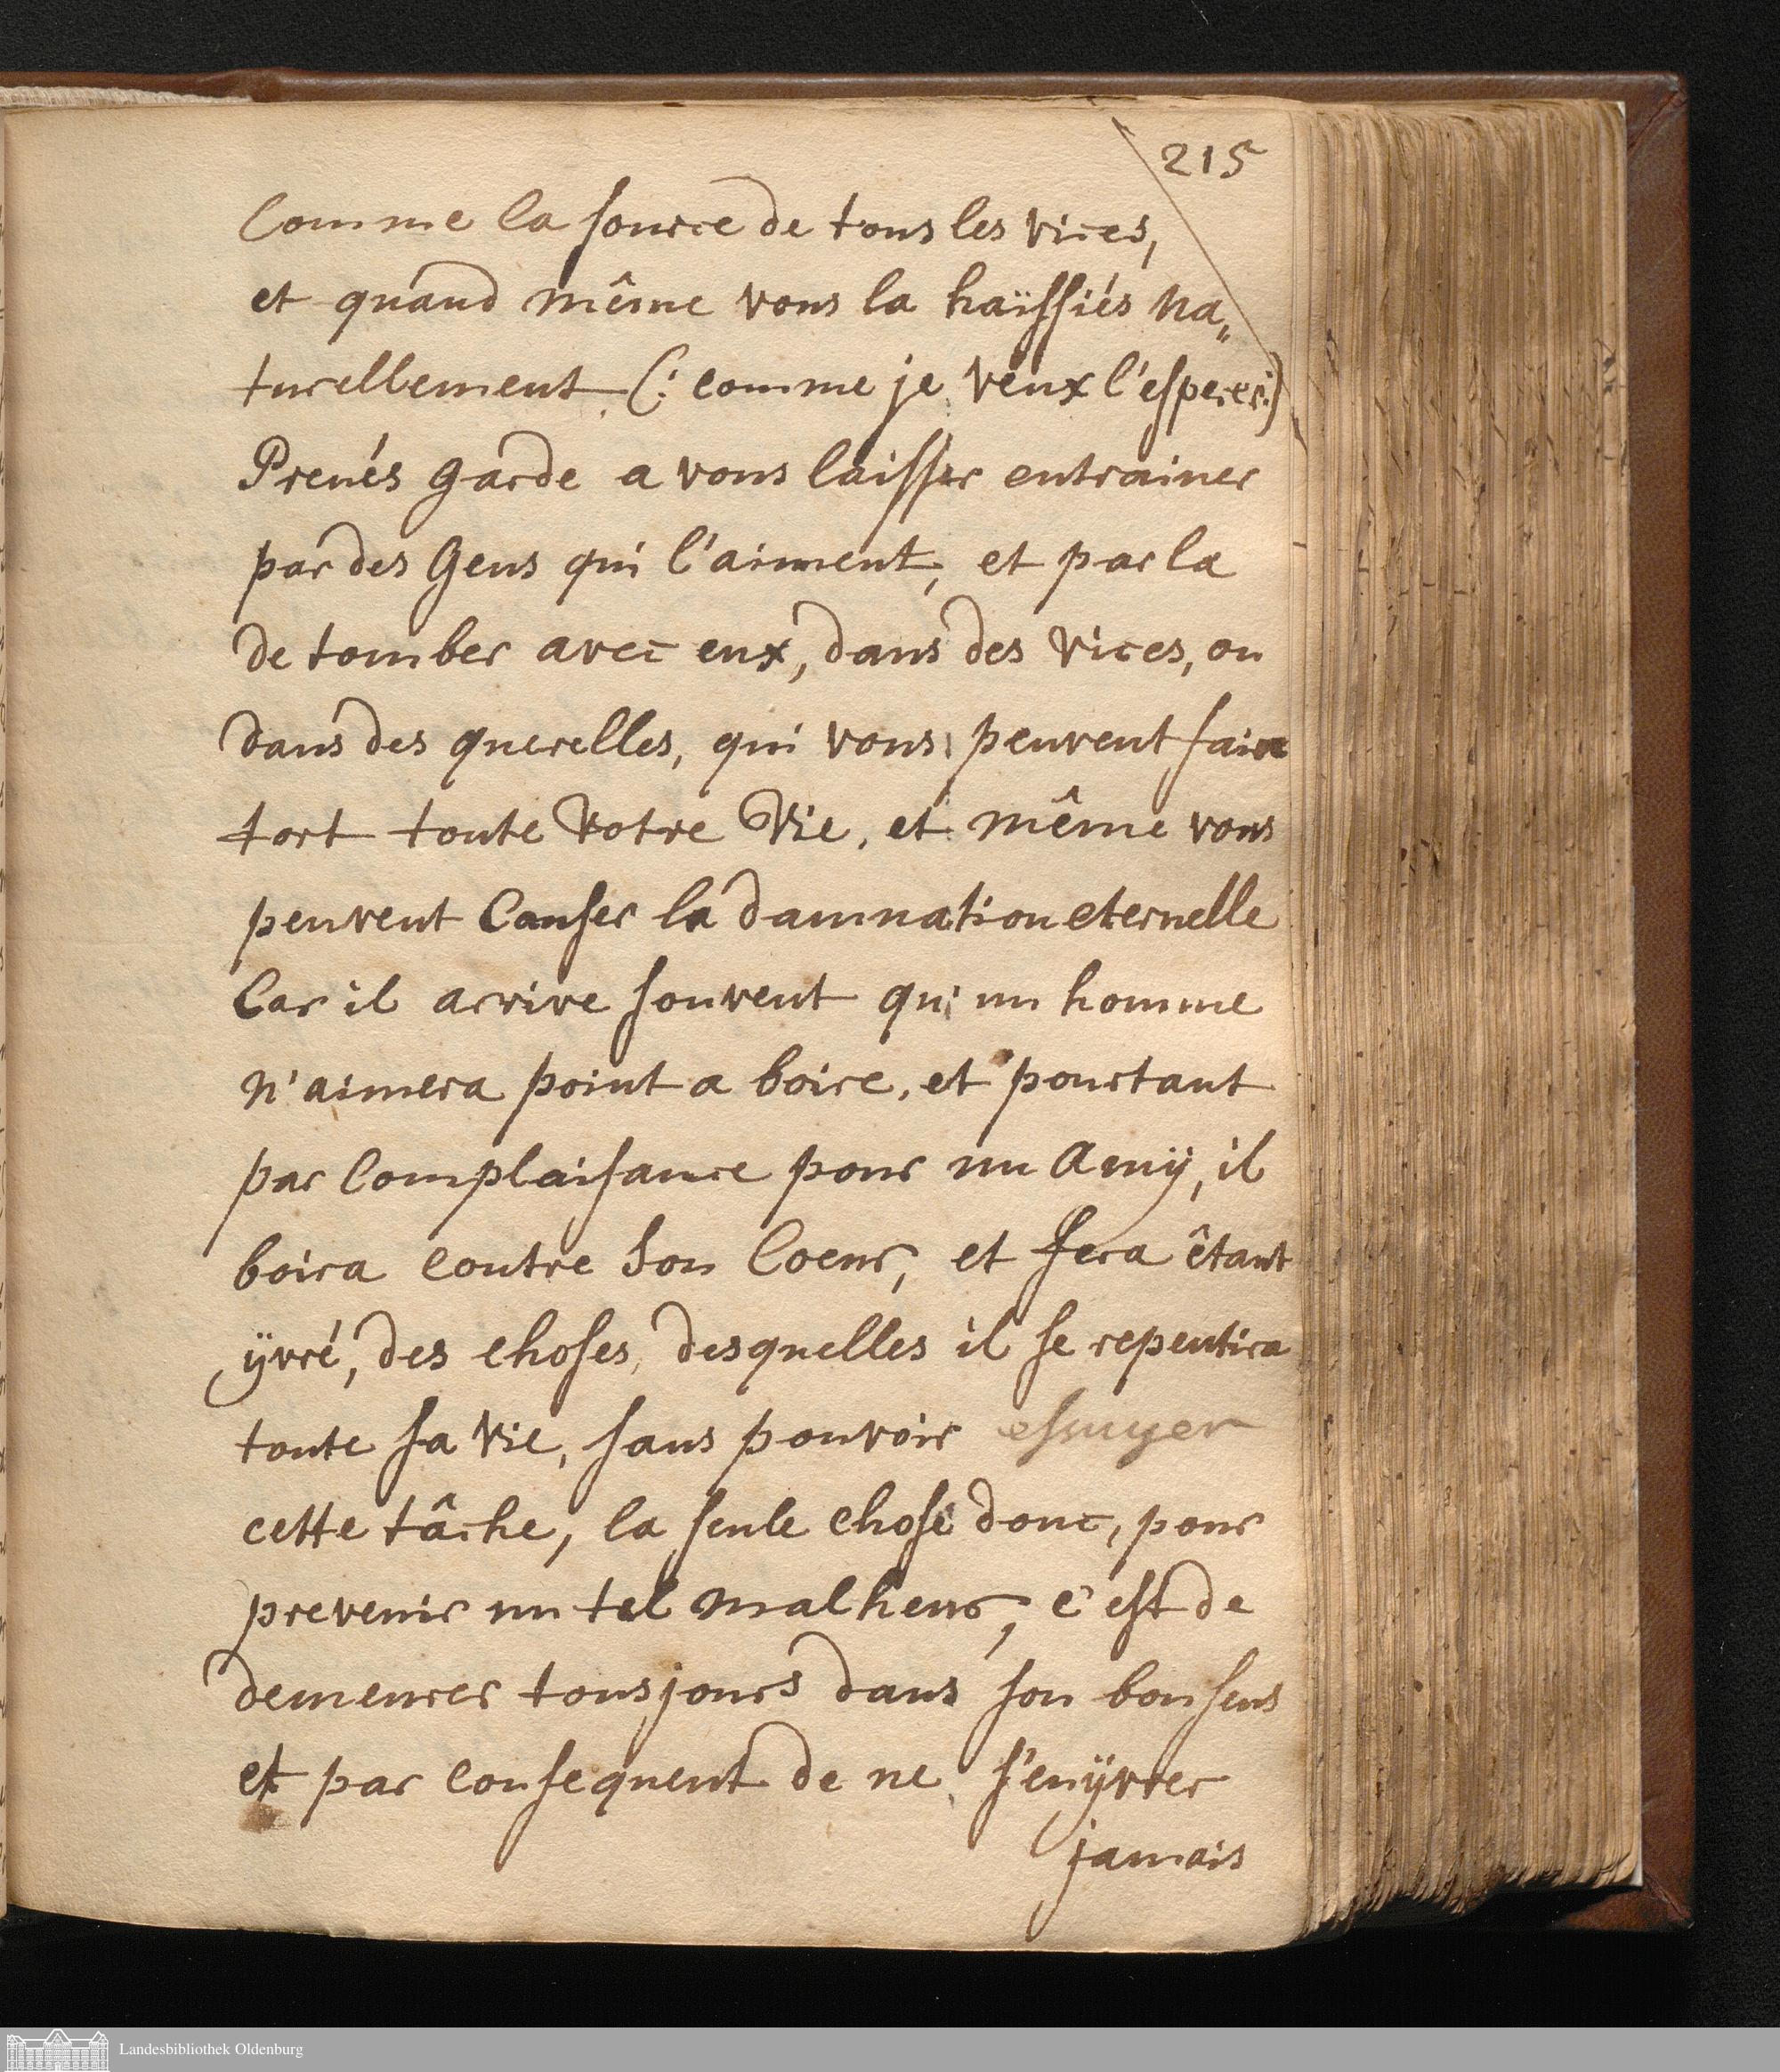 215
Comme la source de tous les vices,
et quand même vous la haïssiés na„
turellement (: comme je veux l'esperer:)
Prenés garde a vous laisser entrainer
par des Gens qui l'aiment, et par la
de tomber avec eux, dans des vices, ou
dans des querelles, qui vous peuvent faire
tort toute votre Vie, et même vous
peuvent Causer la damnation eternelle
Car il arrive souvent qu'un homme
n'aimera point a boire, et pourtant
par Complaisance pour un Amÿ, il
boira contre son Coeur, et fera êtant
ÿvré, des choses, desquelles il se repentira
toute sa vie, sans pouvoir essuyer
cette tâche, la seule chose donc, pour
prevenir un tel malheur, c'est de
demeurer tousjours dans son bon sens
et par consequent de ne s'enÿvrer
jamais
Landesbibliothek Oldenburg